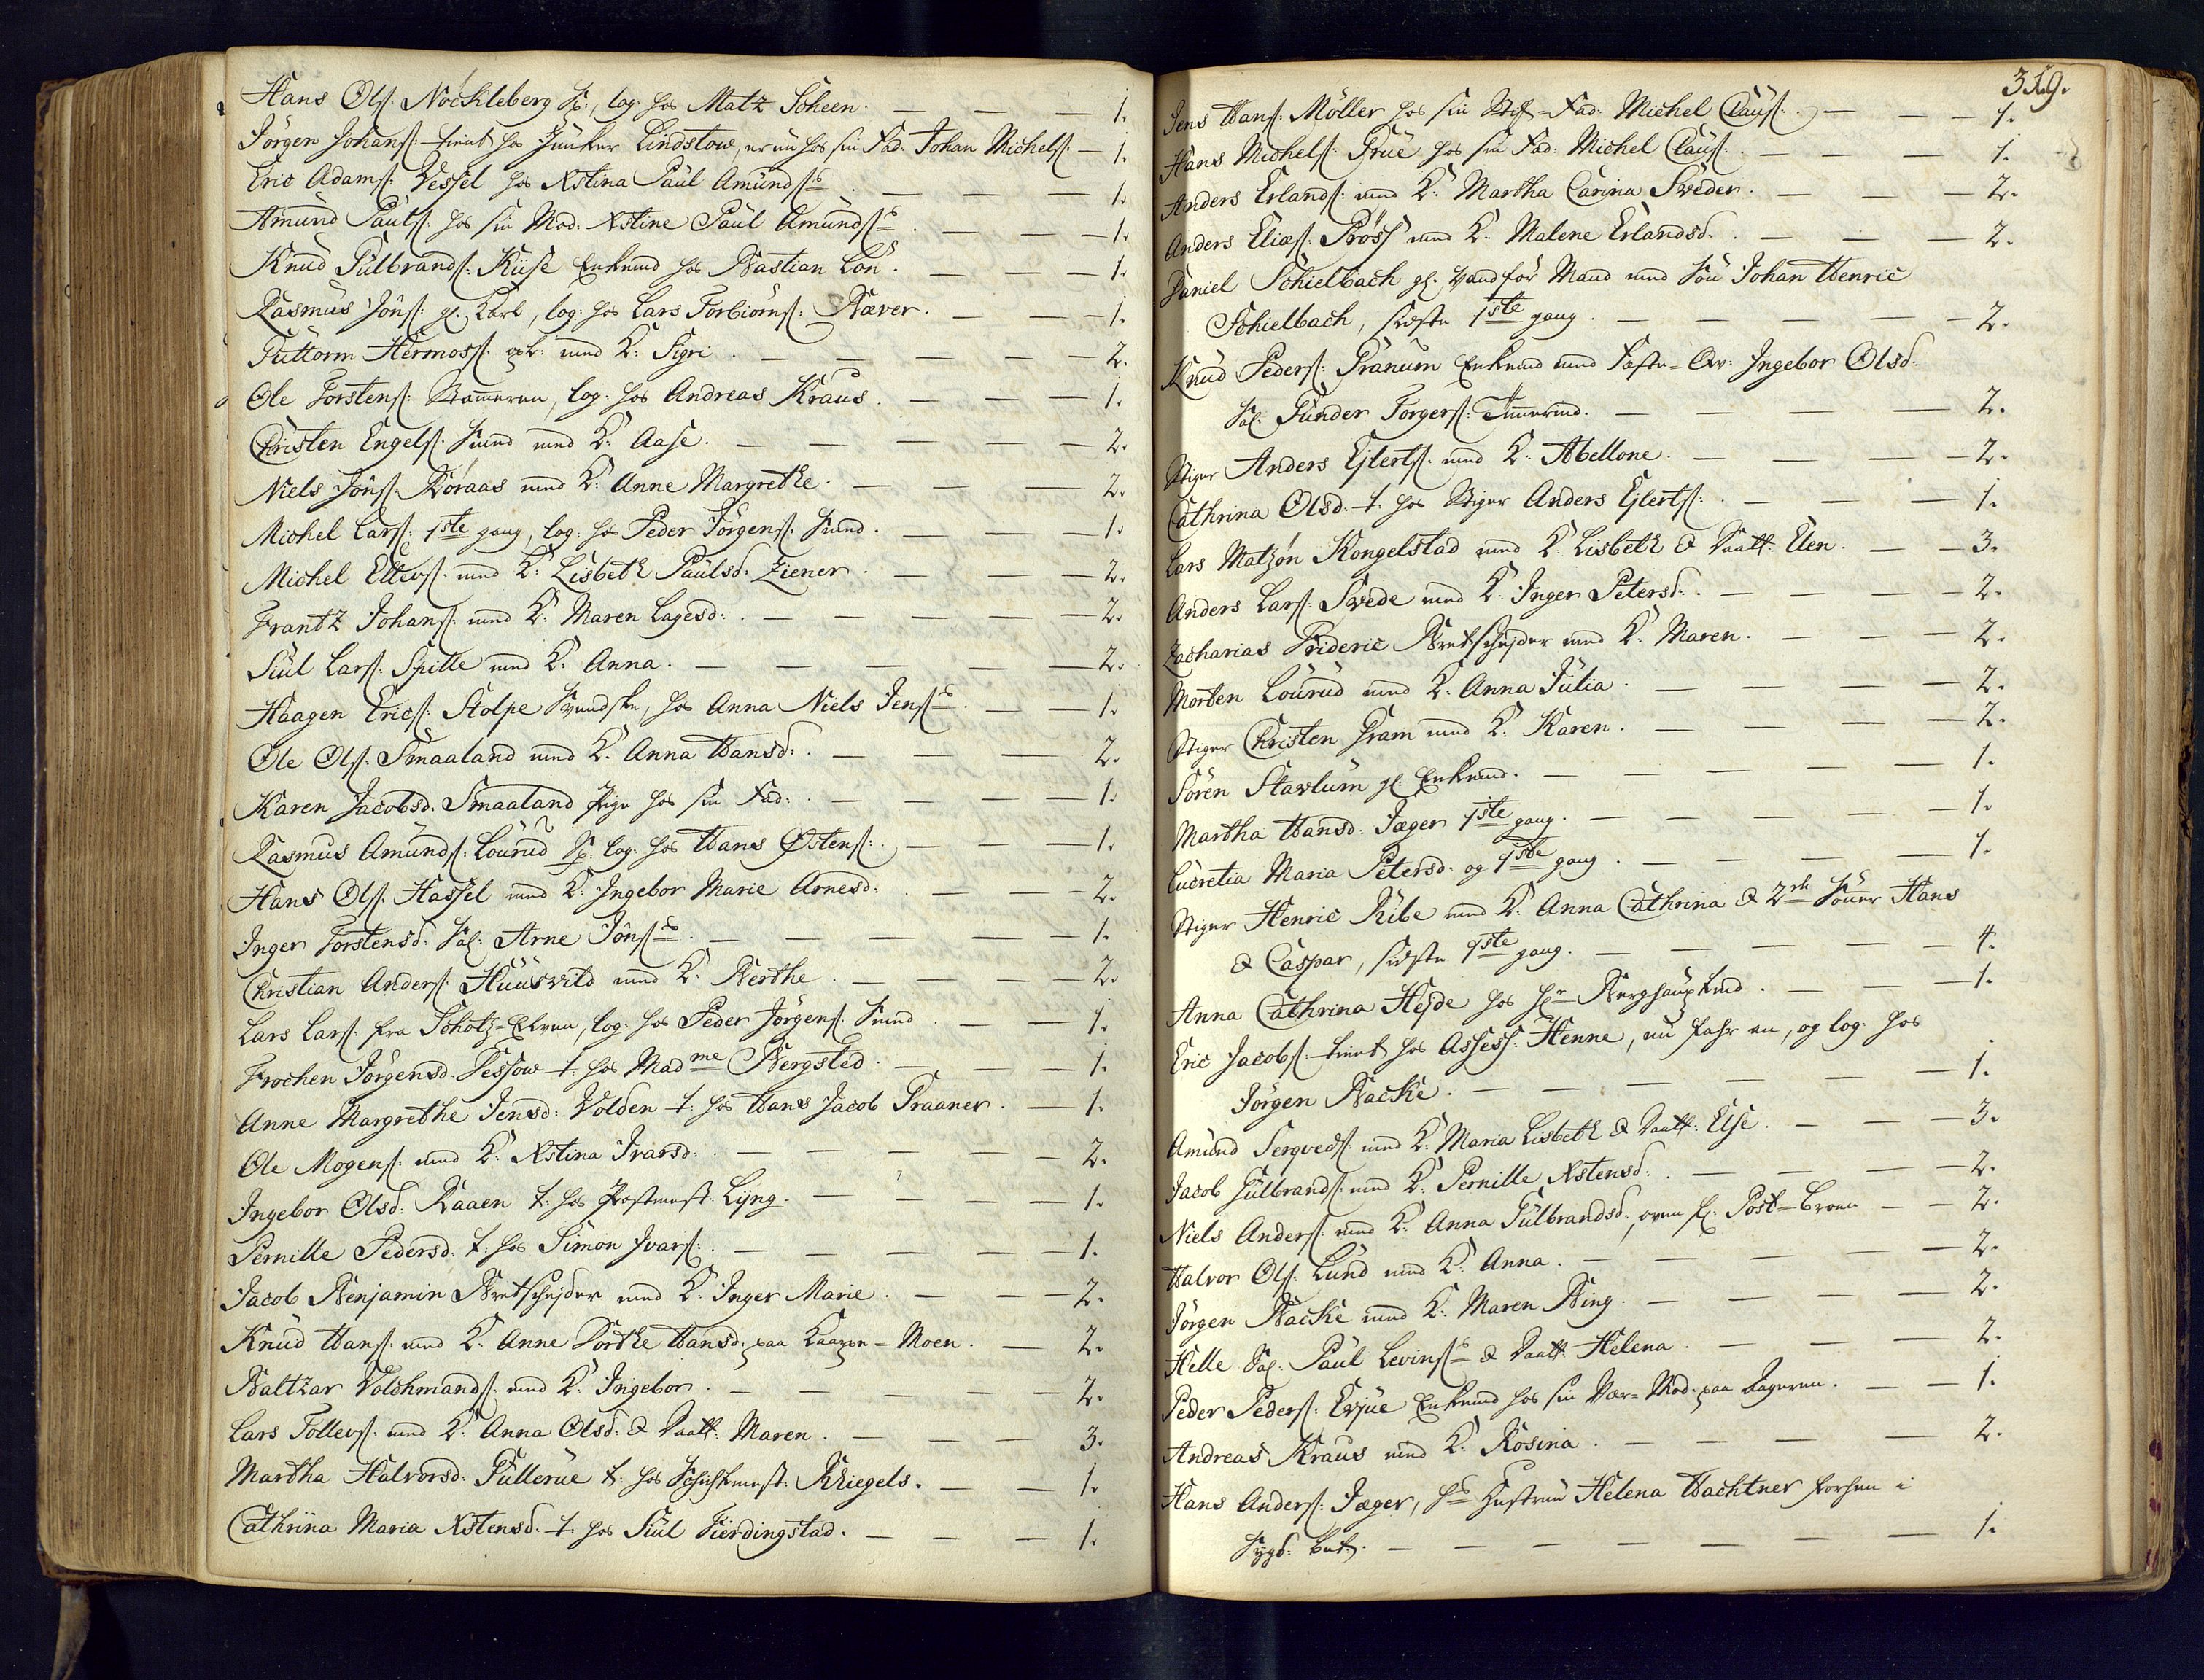 Hans Ols: Nockleberg S:, log: hos Matz Scheen. — — — 1.
Jörgen Johans: tient hos Junker Lindstow, er nu hos sin Fad: Johan Michels: — 1.
Eric Adams: Vessel hos Kstina Paul Amunds — — — 1.
Amund Pauls: hos sin Mod. Kstine Paul Amunds — — — 1.
Knud Gulbrands: Kiise Enkemd hos Bastian Lön. — — — 1.
Rasmus Jöns: gl. Karl, log: hos Lars Torbiörns: Bæver. — — — 1.
Guttorm Hermoss: med K: Sigri. — — — — 2.
Ole Torstens: log. hos Andreas Kraus. — — — 1.
Christen Engels: Smed med K: Aase. — — — — 2.
Niels Jöns: Röraas med K: Anne Margrethe. — — — 2.
Michel Lars: 1ste gang, log: hos Peder Jörgens: Smed. — — — 1.
Michel Ellevs: med K: Lisbeth Paulsd: Ziener. — — — 2.
Frantz Johans: med K: Maren Lagesd: — — — — 2.
Siul Lars: Spille med K: Anna. — — — — — 2.
Haagen Erics: Stolpe Svendske, hos Anna Niels Jens — — — 1.
Ole Ols: Smaaland med K: Anna Hansd: — — — 2.
Karen Jacobsd. Smaaland Pige hos sin Fad: — — — — 1.
Rasmus Amunds: Lourud S: log. hos Hans Østens: — — — 1.
Hans Ols: Hassel med K: Ingebor Marie Arnesd: — — — 2.
Inger Torstensd. Sal: Arne Jöns — — — — 1.
Christian Anders: Huusvild med K: Berthe — — — 2.
Lars Lars: fra Schotz-Elven, log: hos Peder Jörgens: Smed. — — 1.
Frochen Jörgensd. Tessow t. hos Madme Bergsted. — — — 1.
Anne Margrethe Jensd: Volden t: hos Hans Jacob Praaner. — 1.
Ole Mogens: med K: Kstina Ivarsd: — — — — — 2.
Ingebor Olsd: Raaen t: hos Postmest: Lyng. — — — — 1.
Pernille Pedersd. t: hos Simon Ivars: — — — — — 1.
Jacob Benjamin Bretschejder med K: Inger Marie. — — — 2.
Knud Hans: med K: Anne Dorthe Hansd: paa Kaarpe-Moen. — 2.
Baltzar Volchmands: med K: Ingebor. — — — — — 2.
Lars Tollevs: med K: Anna Olsd: & Daatt: Maren. — — — 3.
Martha Halvorsd: Gullerue t: hos Schichtmest: Rhiegels. — — 1.
Cathrina Maria Kstensd. t: hos Siul Fierdingstad. — — — 1.
319.
Jens Hans: Möller hos sin Stif-Fad: Michel Claus: — — — 1.
Hans Michels: Grue hos sin Fad: Michel Claus: — — — 1.
Anders Erlands: med K: Martha Carina Sveder. — — — 2.
Anders Elias: Pröss med K: Malene Erlandsd. — — — 2.
Daniel Schielbach gl. vandför Mand med Sön Johan Henric
Schielbach, sidste 1ste gang. — — — — — 2.
Knud Peders: Granum Enkemd med Fæste-Qv: Ingebor Olsd:
Sal: Gunder Torgers: Tömermd. — — — — — 2.
Stiger Anders Ejlerts: med K: Abellone. — — — — 2.
Cathrina Olsd. t. hos Stiger Anders Ejlerts: — — — 1.
Lars Matzön Kongelstad med K: Lisbeth & Daatt: Elen. — — 3.
Anders Lars: Svede med K: Inger Petersd: — — — — 2.
Zacharias Frideric Bretschejder med K: Maren. — — — 2.
Morten Lourud med K: Anna Julia. — — — — — 2.
Stiger Christen Gram med K: Karen. — — — — — 2.
Sören Stavlum gl: Enkemd. — — — — — — 1.
Martha Hansd: Jæger 1ste gang. — — — — — 1.
Lucretia Maria Petersd. og 1ste gang. — — — — — 1.
Stiger Henric Ribe med K: Anna Cathrina & 2de Sönner Hans
& Caspar, sidste 1ste gang. — — — — — 4.
Anna Cathrina Hejde hos Hr Berghauptmd. — — — 1.
Eric Jacobs: tient hos Assess: Henne, nu fahr en, og log. hos
Jörgen Backe. — — — — — — 1.
Amund Sergveds: med K: Maria Lisbeth & Daatt: Else. — — — 3.
Jacob Gulbrands: med K: Pernille Kstensd: — — — — 2.
Niels Anders: med K: Anna Gulbrandsd., oven for Post-broen — — 2.
Halvor Ols: Lund med K: Anna. — — — — — 2.
Jörgen Backe med K: Maren Bing. — — — — — 2.
Helle Sal: Paul Levins & Daatt: Helena. — — — — 2.
Peder Peders: Evjue Enkemd hos sin Vær-Mod: paa Bageren. — — 1.
Andreas Kraus med K: Rosina. — — — — — 2.
Hans Anders: Jæger, hs Hustrue Helena Wachtner forhen i
Sygd: bet: — — — — — — — 1.